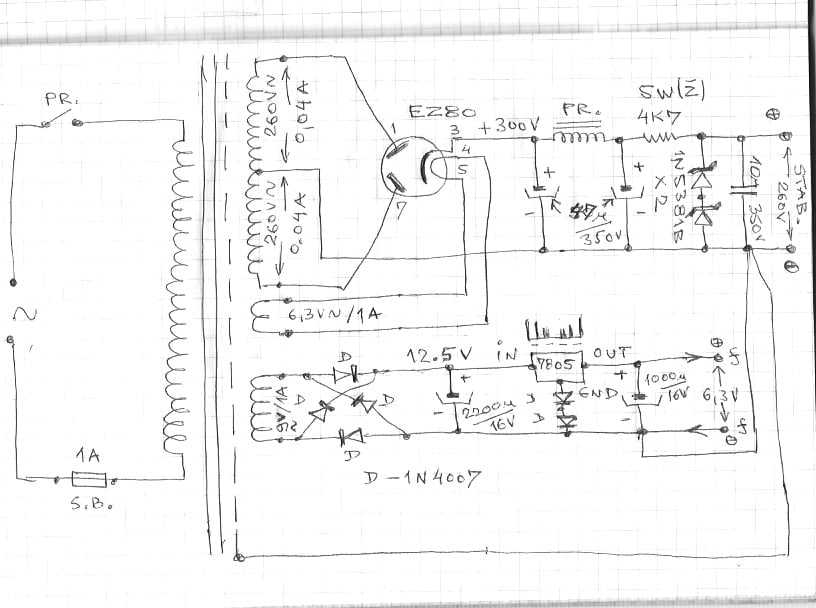 PR.
~
1A
S.B.
260V~
0,04A
260V~
0,04A
6,3V~/1A
EZ80
1
3
4
5
7
+300V
PR.
5W(Σ)
4K7
+
-
+
-
47µ
350V
1N5381B
x2
350V
⊕
STAB.
260V
⊖
9V/1A
D
D
D
D
12.5V
+
-
2200µ
16V
IN
7805
OUT
GND
D
D
+
-
1000µ
16V
⊕
f
6,3V
f
⊖
D-1N4007